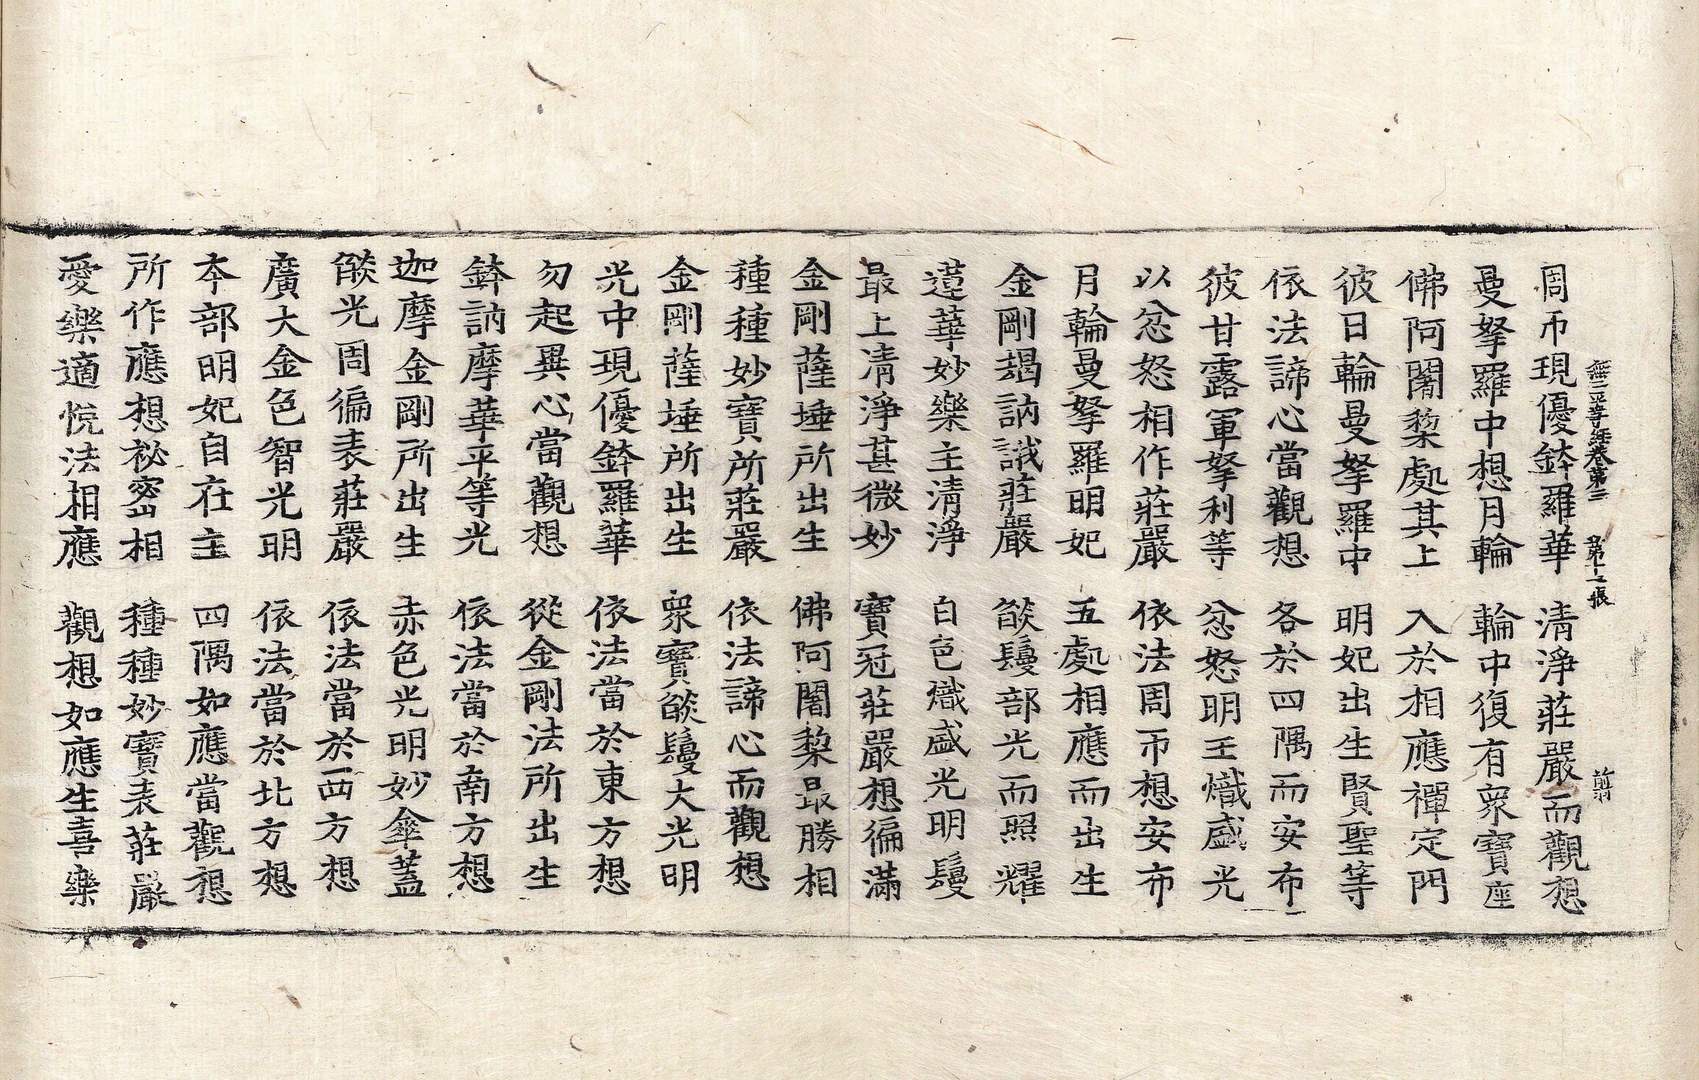 無二平等經卷第三　第十七張　剪
周帀現優鉢羅華　清淨莊嚴而觀想
曼拏羅中想月輪　輪中復有衆寶座
佛阿閦棃處其上　入於相應禪定門
彼日輪曼拏羅中　明妃出生賢聖等
依法諦心當觀想　各於四隅而安布
彼甘露軍拏利等　忿怒明王熾盛光
以忿怒相作莊嚴　依法周帀想安布
月輪曼拏羅明妃　五處相應而出生
金剛朅訥誐莊嚴　燄鬘部光而照耀
蓮華妙樂主清淨　白色熾盛光明鬘
最上清淨甚微妙　寶冠莊嚴想徧滿
金剛薩埵所出生　佛阿閦棃最勝相
種種妙寶所莊嚴　依法諦心而觀想
金剛薩埵所出生　衆寶燄鬘大光明
光中現優鉢羅華　依法當於東方想
勿起異心當觀想　從金剛法所出生
鉢訥摩華平等光　依法當於南方想
迦摩金剛所出生　赤色光明妙傘蓋
燄光周徧表莊嚴　依法當於西方想
廣大金色智光明　依法當於北方想
本部明妃自在主　四隅如應當觀想
所作應想祕密相　種種妙寶表莊嚴
愛樂適悅法相應　觀想如應生喜樂